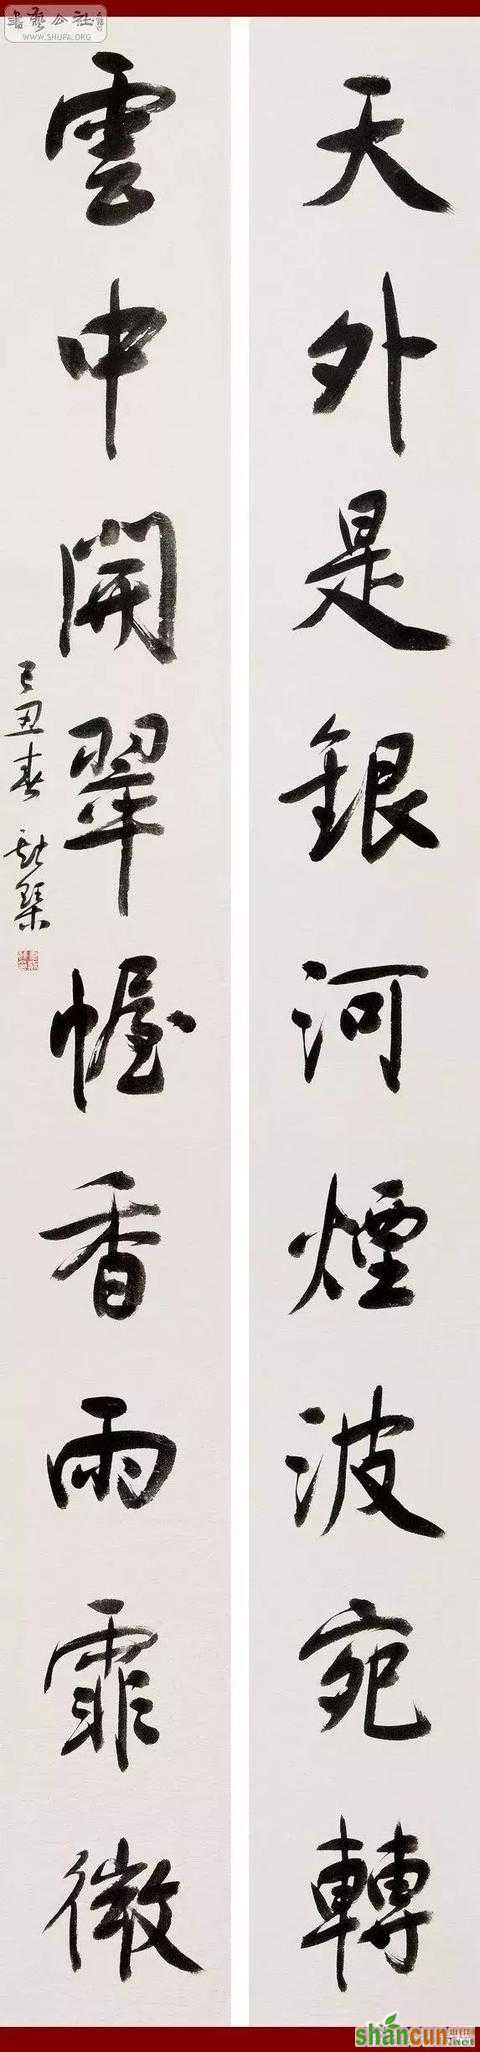 天外是銀河煙波宛轉
雲中開翠幄香雨霏微
己丑春
書藝公社
WWW.SHUFA.ORG
shancun